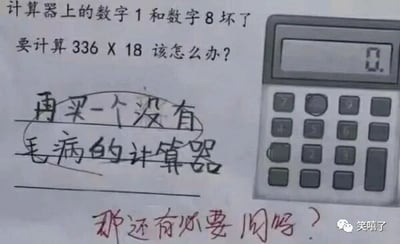 计算器上的数字1和数字8坏了
要计算336 X 18 该怎么办?
0.
再买一个没有
毛病的计算器
那还有必要问吗?
笑嘻了